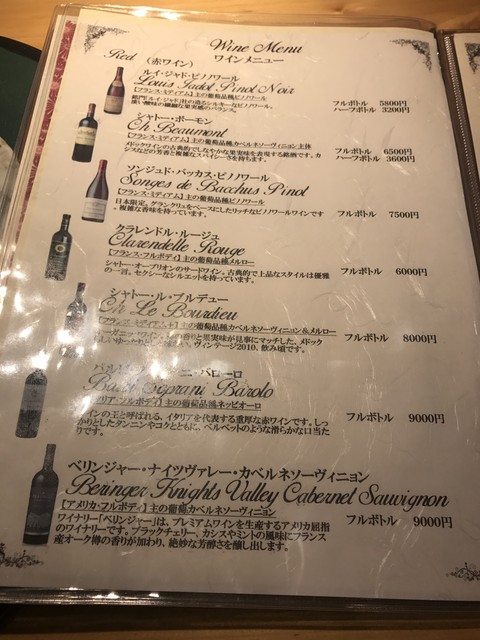 Wine Menu
Red (赤ワイン) ワインメニュー
ルイ・ジャド・ピノノワール
Louis Jadot Pinot Noir
【フランス・ミディアム】主の葡萄品種ピノノワール
フルボトル 5800円
ハーフボトル 3200円
シャトー・ボーモン
Ch Beaumont
【フランス・ミディアム】主の葡萄品種カベルネソーヴィニヨン主体
メドックワインの古典的でしなやかな果実味を表現する銘酒です。カ
シスなどの芳香と複雑なスパイシーさを持ちます。
フルボトル 6500円
ハーフボトル 3600円
ソンジュド・バッカス・ピノノワール
Songes de Bacchus Pinot
【フランス・ミディアム】主の葡萄品種ピノノワール
日本限定。グランクリュをベースにしたリッチなピノノワールワインです
。複雑な香味を持っています。
フルボトル 7500円
クラレンドル・ルージュ
Clarendelle Rouge
【フランス・フルボディ】主の葡萄品種メルロー
シャトー・オーブリオンのサードワイン。古典的で上品なスタイルは優雅
の一言。セクシーなシルエットを持っています。
フルボトル 6000円
シャトー・ル・ブルデュー
Ch Le Bourdieu
【フランス・ミディアム】主の葡萄品種カベルネソーヴィニヨン&メルロー
の香りと果実味が見事にマッチした、メドック
ヴィンテージ2010、飲み頃です。
フルボトル 8000円
バローロ
Barolo
フルボディ】主の葡萄品種ネッビオーロ
インの王と呼ばれる、イタリアを代表する重厚な赤ワインです。しっ
かりとしたタンニンやコクとともに、ベルベットのような滑らかな口当た
りです。
フルボトル 9000円
ベリンジャー・ナイツヴァレー・カベルネソーヴィニョン
Beringer Knights Valley Cabernet Sauvignon
【アメリカ・フルボディ】主の葡萄品種カベルネソーヴィニヨン
ワイナリー「ベリンジャー」は、プレミアムワインを生産するアメリカ屈指
のワイナリーです。ブラックチェリー、カシスやミントの風味にフランス
産オーク樽の香りが加わり、絶妙な芳醇さを醸し出します。
フルボトル 9000円